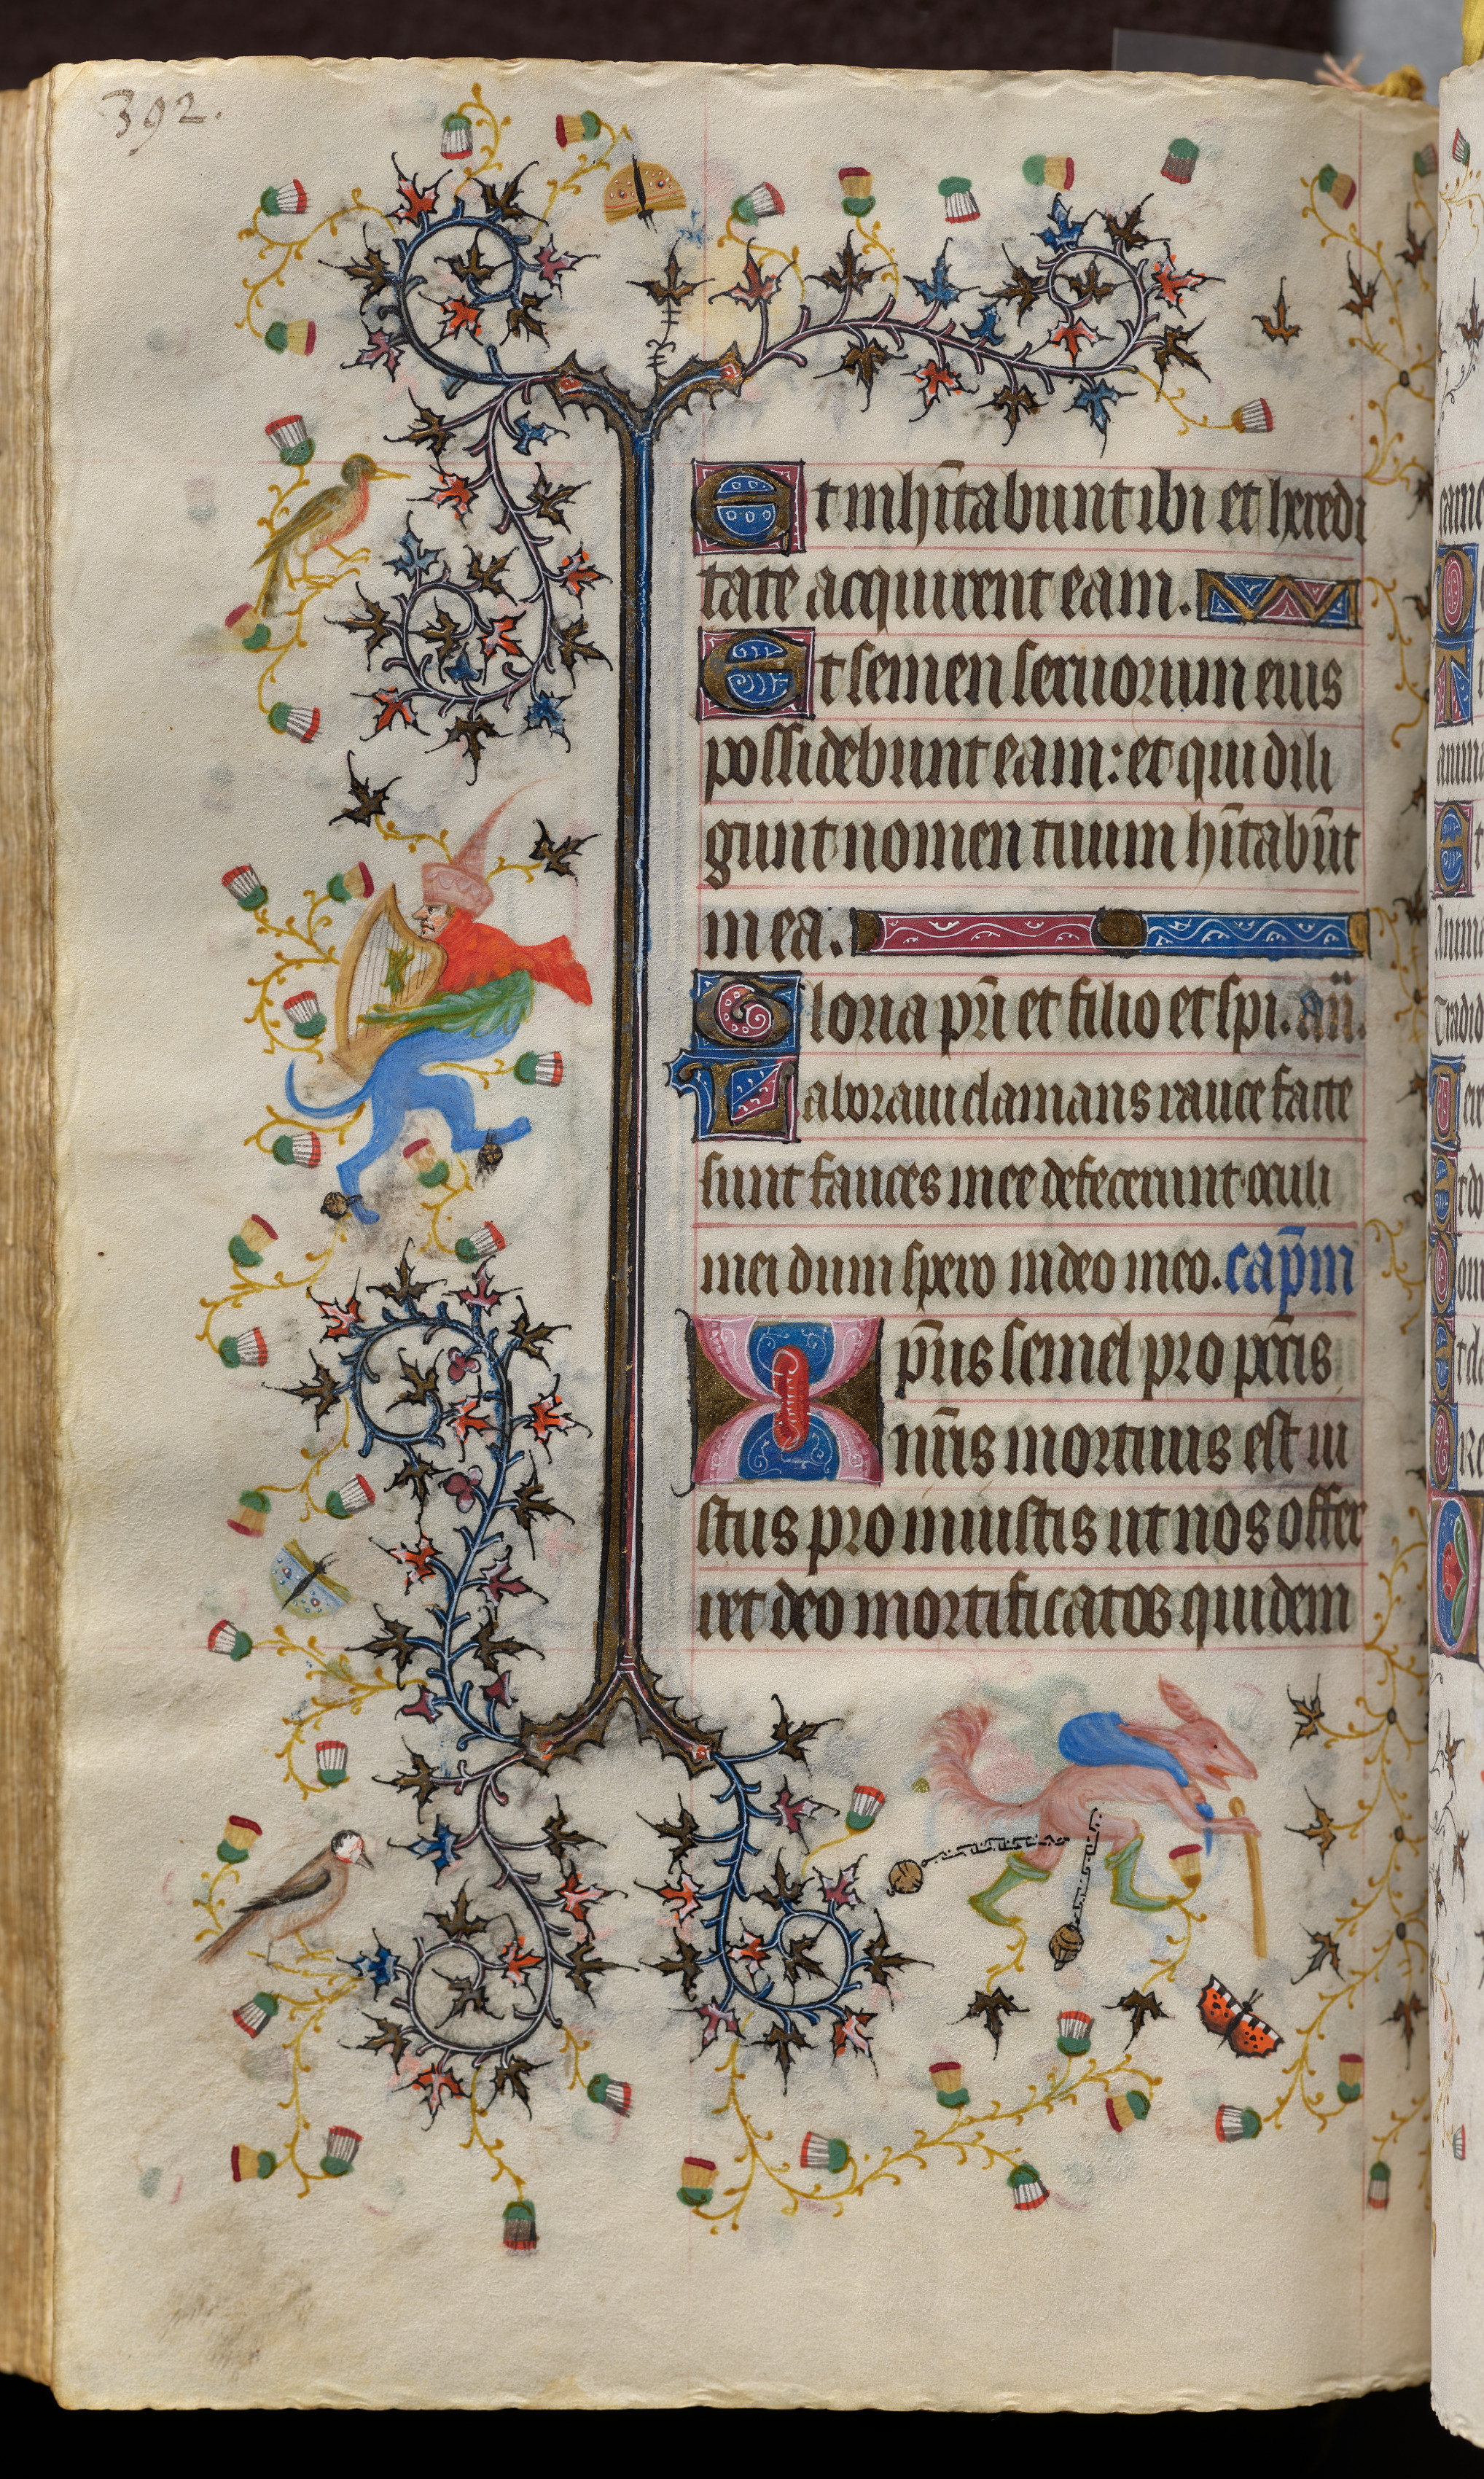 392.
Et inhītabunt ibi et heredi
tate acquirent eam.
Et semen seruorum eius
possidebunt eam: et qui dili
gunt nomen tuum hītabūt
in ea.
Gloria pr̄i et filio et spi. añ.
Laboraui clamans rauce facte
sunt fauces mee defecerunt oculi
mei dum spero in deo meo. cap̄m
Xp̄us semel pro pctīs
nr̄is mortuus est iu
stus pro iniustis ut nos offer
ret deo mortificatos quidem